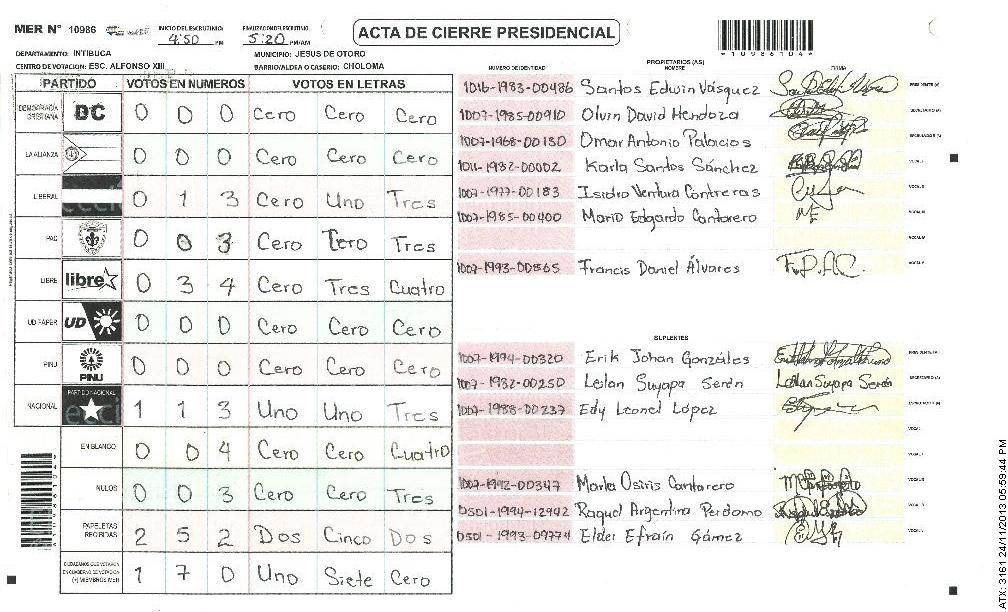 MER N° 10986 INICIO DEL ESCRUTINIO 4:50 PM FINALIZACION DEL ESCRUTINIO 5:20 PM/AM ACTA DE CIERRE PRESIDENCIAL
*10986104*
DEPARTAMENTO: INTIBUCA MUNICIPIO: JESUS DE OTORO
CENTRO DE VOTACION: ESC. ALFONSO XIII BARRIO/ALDEA O CASERIO: CHOLOMA
PARTIDO VOTOS EN NUMEROS VOTOS EN LETRAS
DEMOCRACIA CRISTIANA DC 0 0 0 Cero Cero Cero
LA ALIANZA 0 0 0 Cero Cero Cero
LIBERAL 0 1 3 Cero Uno Tres
PAC 0 0 3 Cero Cero Tres
LIBRE libre 0 3 4 Cero Tres Cuatro
UD FAPER UD 0 0 0 Cero Cero Cero
PINU PINU 0 0 0 Cero Cero Cero
NACIONAL PARTIDO NACIONAL 1 1 3 Uno Uno Tres
EN BLANCO 0 0 4 Cero Cero Cuatro
NULOS 0 0 3 Cero Cero Tres
PAPELETAS RECIBIDAS 2 5 2 Dos Cinco Dos
CIUDADANOS QUE VOTARON EN CUADERNO DE VOTACION (+) MIEMBROS MER 1 7 0 Uno Siete Cero
PROPIETARIOS (AS)
NUMERO DE IDENTIDAD NOMBRE FIRMA
1016-1983-00486 Santos Edwin Vásquez PRESIDENTE (A)
1007-1985-00910 Olvin David Mendoza SECRETARIO (A)
1007-1968-00150 Omar Antonio Palacios ESCRUTADOR (A)
1016-1982-00002 Karla Santos Sánchez VOCAL I
1007-1977-00183 Isidro Ventura Contreras VOCAL II
1007-1985-00400 Mario Edgardo Cantarero ME VOCAL III
VOCAL IV
1007-1993-00865 Francis Daniel Álvares VOCAL V
SUPLENTES
1007-1994-00320 Erik Johan Gonzáles PRESIDENTE (A)
1007-1982-00250 Leilan Suyapa Serén Leilan Suyapa Serén SECRETARIO (A)
1007-1988-00237 Edy Leonel López ESCRUTADOR (A)
VOCAL I
VOCAL II
1007-1992-00347 Marla Osiris Cantarero VOCAL III
0501-1994-12942 Raquel Argentina Perdomo VOCAL IV
0501-1993-09774 Elder Efraín Gámez VOCAL V
ATX: 3161 24/11/2013 05:59:44 PM